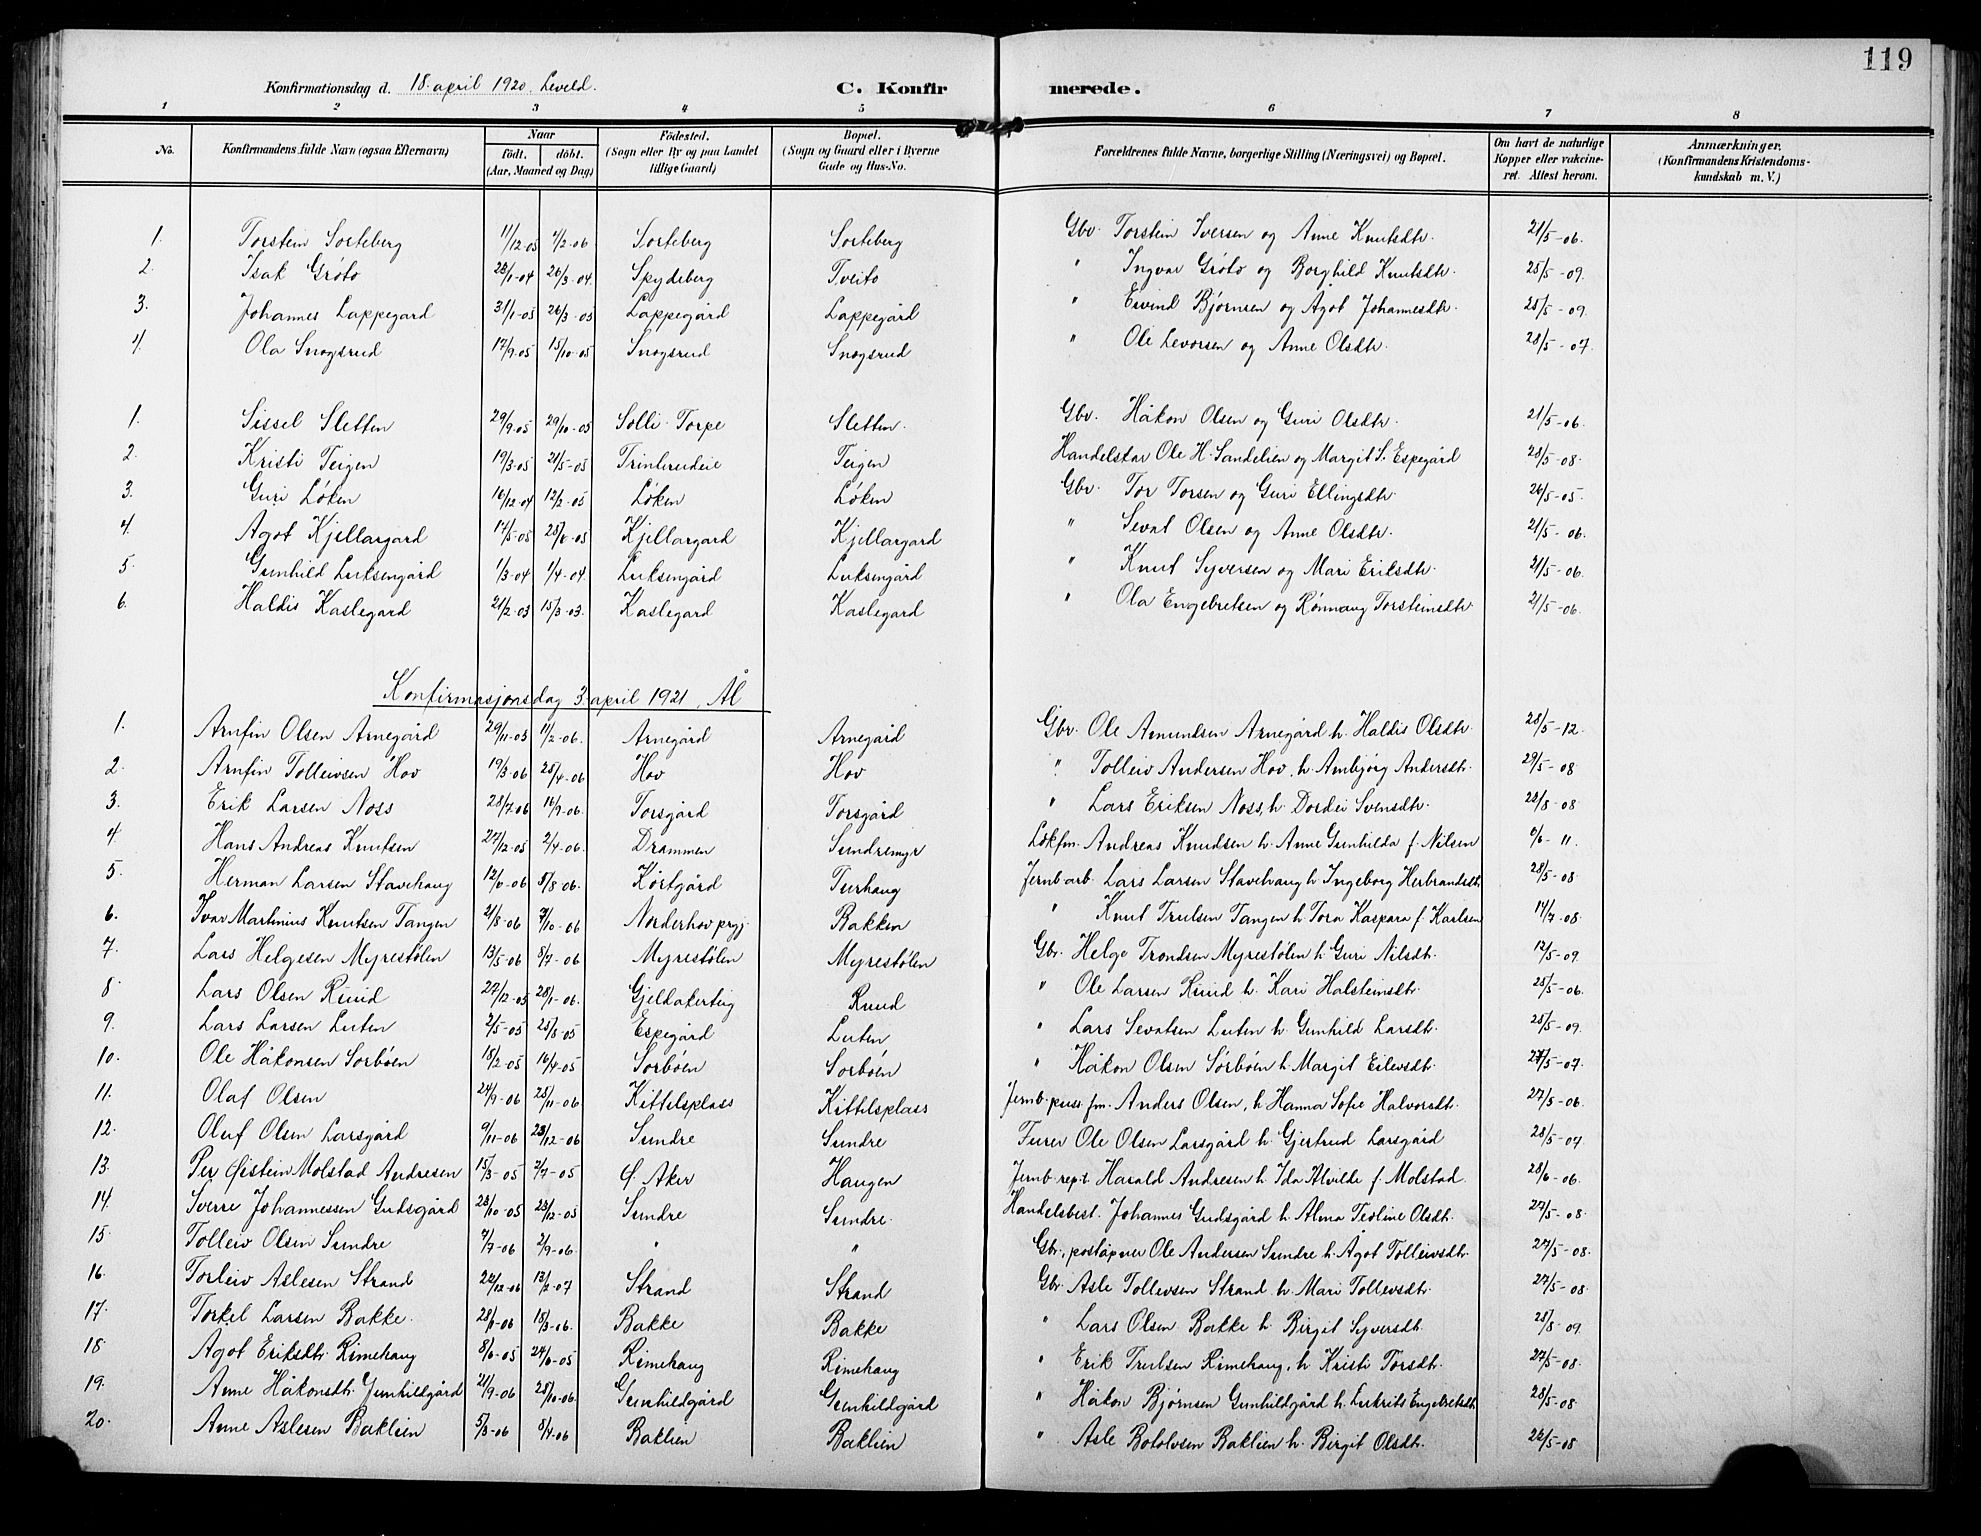 119
Konfirmationsdag d. 18. april 1920. Leveld. C. Konfirmerede.
1 2 3 4 5 6 7 8
No. Konfirmandens fulde Navn (ogsaa Efternavn) Naar født. døbt. (Aar, Maaned og Dag) Fødested. (Sogn eller By og paa Landet tillige Gaard) Bopæl. (Sogn og Gaard eller i Byerne Gade og Hus-No. Forældrenes fulde Navne, borgerlige Stilling (Næringsvei) og Bopæl. Om havt de naturlige Kopper eller vakcineret. Attest herom. Anmærkninger. (Konfirmandens Kristendomskundskab m. V.)
1. Torstein Sorteberg 11/12-05 4/2-06 Sorteberg Sorteberg Gbr. Torstein Iversen og Anne Knutsdtr. 21/5-06.
2. Isak Grøto 28/1-04 26/3-04. Spydeberg Tveito " Ingvar Grøto og Borghild Knutsdtr. 25/5-09.
3. Johannes Lappegard 31/1-05 26/3-05 Lappegård Lappegård " Eivind Bjørnsen og Agot Johannesdtr. 25/5-09.
4. Ola Snogsrud 17/9-05 15/10-05 Snogsrud Snogsrud " Ole Levorsen og Anne Olsdtr. 28/5-07.
1. Sissel Sletten 29/9-05 29/10-05 Solli Torpe Sletten. Gbr. Håkon Olsen og Guri Olsdtr. 21/5-06.
2. Kristi Teigen 19/3-05 21/5-05 Trintrudeie Teigen Handelskar Ole H. Sandelien og Margit S. Espegård 28/5-08.
3. Guri Løken 16/12-04 12/2-05 Løken Løken Gbr. Tor Torsen og Guri Ellingsdtr. 26/5-05.
4. Agot Kjellargard 14/5-05 -05 Kjellargard Kjellargard " Sevat Olsen og Anne Olsdtr. 21/5-06.
5. Gunhild Luksengård 1/3-04 1/4-04. Luksengård Luksengård " Knut Syversen og Mari Eriksdtr. 21/5-06.
6. Haldis Kaslegard 21/2-03 15/3-03. Kaslegard Kaslegard " Ola Engebretsen og Rønnaug Torsteinsdtr 21/5-06.
Konfirmasjonsdag 3. april 1921, Ål
1. Arnfin Olsen Arnegård 29/11-05 11/2-06. Arnegård Arnegård Gbr. Ole Amundsen Arnegård h. Haldis Olsdtr. 28/5-12.
2. Arnfin Tolleivsen Hov 19/3-06 25/4-06 Hov Hov " Tolleiv Andersen Hov, h. Ambjørg Andersdtr. 29/5-08
3. Erik Larsen Noss 28/7-06 16/9-06. Torsgård Torsgård " Lars Eriksen Noss, h. Dordei Svensdtr. 28/8-08.
4. Hans Andreas Knutsen 27/12-05 2/4-06. Drammen Sundremyr Lokfm. Andreas Knudsen h. Anne Gunhilda f. Nilsen 6/6-11.
5. Herman Larsen Stavehaug 12/6-06 5/8-06. Kjørtgård Turhaug Jernb.arb. Lars Larsen Stavehaug h. Ingeborg Herbrandsdtr. 28/5-08.
6. Ivar Martinius Knutsen Tangen 21/8-06 7/10-06 Norderhov prgj. Bakken " Knut Trulsen Tangen h. Tora Kaspara f. Karlsen 14/7-08.
7. Lars Helgesen Myrestølen 13/5-06 8/7-06 Myrestølen Myrestølen Gbr. Helge Trondsen Myrestølen h. Guri Nilsdtr. 12/5-09.
8. Lars Olsen Ruud 27/12-05 28/1-06. Gjeldakerteig Ruud " Ole Larsen Ruud h. Kari Halsteinsdtr. 25/5-06.
9. Lars Larsen Luten 2/5-05 25/5-05 Espegård Luten " Lars Sevatsen Luten h. Gunhild Larsdtr. 25/5-09.
10. Ole Håkonsen Sorbøen 18/2-05 16/4-05 Sorbøen Sorbøen " Håkon Olsen Sørbøen h. Margit Eilevsdtr. 27/5-07.
11. Olaf Olsen 24/9-06 25/11-06 Kittelsplass Kittelsplass Jernb.puss.fm. Anders Olsen, h. Hanna Sofie Halvorsdtr. 27/5-06.
12. Oluf Olsen Larsgård 9/11-06 23/12-06 Sundre Sundre Furer Ole Olsen Larsgård h. Gjertrud Larsgård 28/5-07
13. Per Øistein Molstad Andresen 15/3-05 2/7-05 Ø. Aker Haugen Jernb.rep.t. Harald Andresen h. Ida Alvilde f. Molstad. 28/6-06.
14. Sverre Johannessen Gudsgård 28/10-05 23/12-05 Sundre Sundre. Handelsbest. Johannes Gudsgård h. Alma Teoline Olsdtr. 27/5-08.
15. Tolleiv Olsen Sundre 7/7-06 2/9-06. " " Gbr., poståpner Ole Andersen Sundre h. Ågot Tolleivsdtr. 27/5-08.
16. Torleiv Aslesen Strand 22/12-06 12/2-07 Strand Strand Gbr. Asle Tollevsen Strand h. Mari Tollevsdtr. 27/5-08.
17. Torkel Larsen Bakke. -06 18/3-06. Bakke Bakke " Lars Olsen Bakke h. Birgit Syversdtr. 25/8-09.
18. Agot Eriksdtr. Rimehaug 8/6-05 24/6-05 Rimehaug Rimehaug " Erik Trulsen Rimehaug, h. Kristi Torsdtr. 27/5-08.
19. Anne Håkonsdtr. Gunhildgård 21/9-06 28/10-06. Gunhildgård Gunhildgård " Håkon Bjørnsen Gunhildgård h. Lukrits Engebretsdtr. 28/5-08
20. Anne Aslesen Baklien 5/3-06 8/4-06 Baklien Baklien " Asle Botolvsen Baklien h. Birgit Olsdtr. 22/5-08